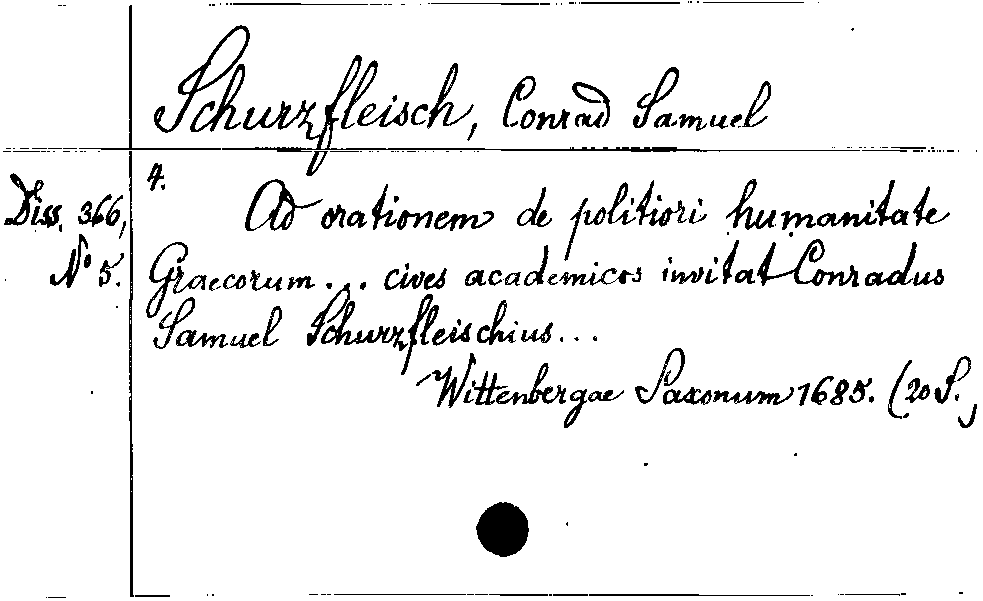 Schurzfleisch, Conrad Samuel
4.
Diss. 366,
No 5.
Ad orationem de politiori humanitate
Graecorum ... cives academicos invitat Conradus
Samuel Schurzfleischius ...
Wittenbergae Saxonum 1685. (20 S.)